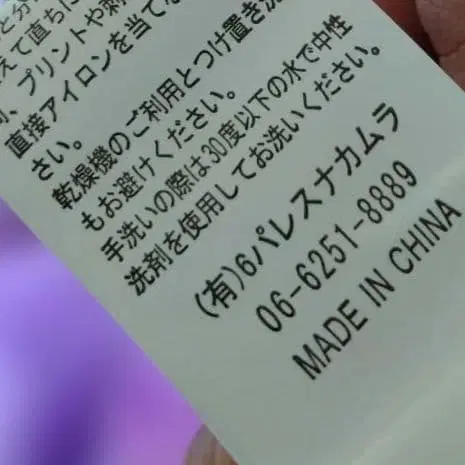 えて直ちに
、プリントや刺
直接アイロンを当てな
さい。
乾燥機のご利用とつけ置き洗
もお避けください。
手洗いの際は30度以下の水で中性
洗剤を使用してお洗いください。
(有)6パレスナカムラ
06-6251-8889
MADE IN CHINA